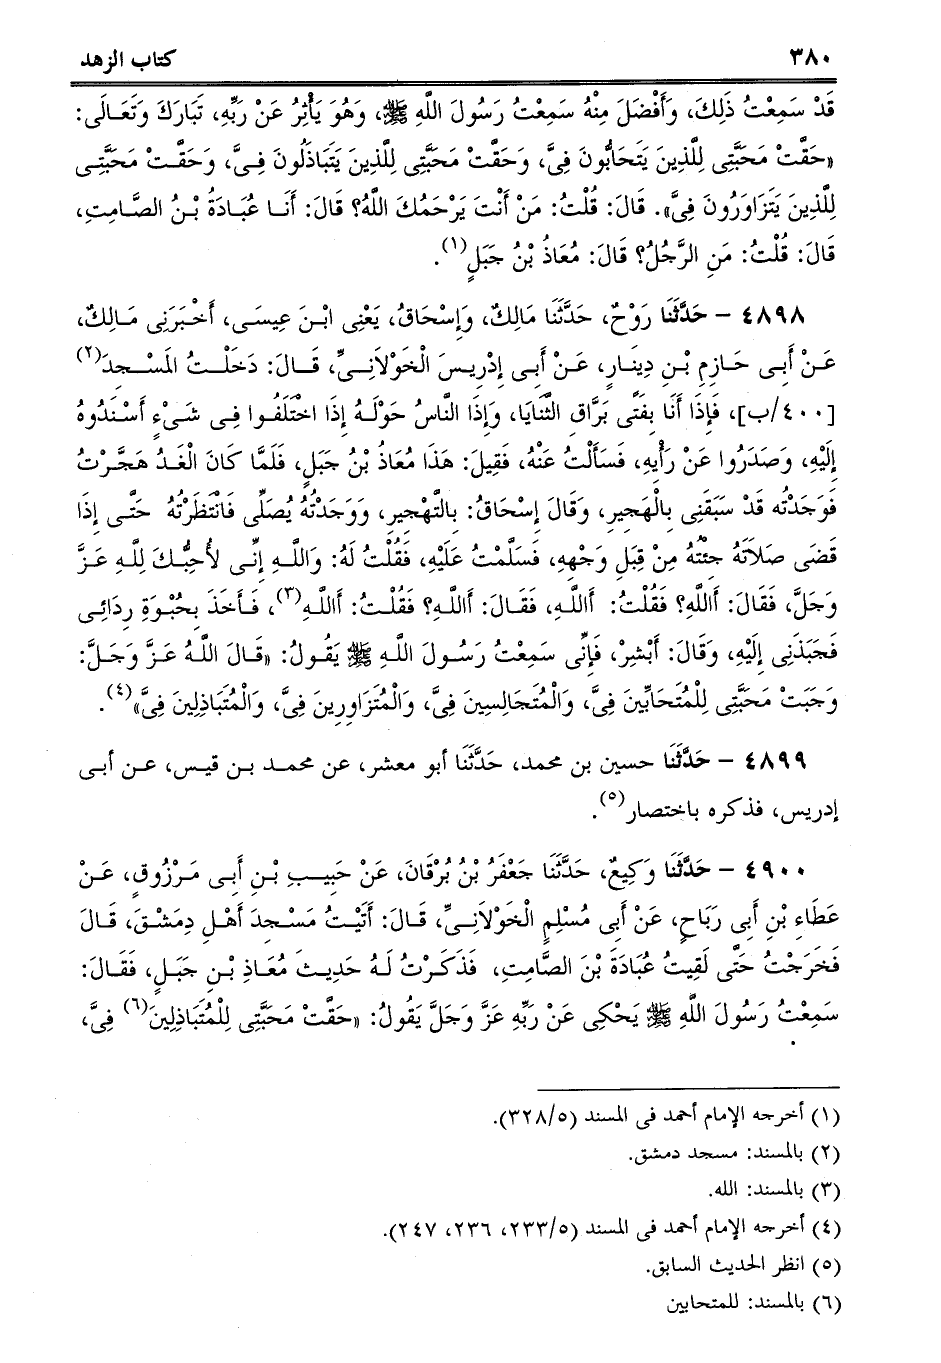 ٣٨٠ كتاب الزهد
قَدْ سَمِعْتُ ذَلِكَ، وَأَفْضَلَ مِنْهُ سَمِعْتُ رَسُولَ اللَّهِ ﷺ، وَهُوَ يَأْثِرُ عَنْ رَبِّهِ، تَبَارَكَ وَتَعَالَى:
«حَقَّتْ مَحَبَّتِى لِلَّذِينَ يَتَحَابُّونَ فِىَّ، وَحَقَّتْ مَحَبَّتِى لِلَّذِينَ يَتَبَاذَلُونَ فِىَّ، وَحَقَّتْ مَحَبَّتِى
لِلَّذِينَ يَتَزَاوَرُونَ فِىَّ». قَالَ: قُلْتُ: مَنْ أَنْتَ يَرْحَمُكَ اللَّهُ؟ قَالَ: أَنَا عُبَادَةُ بْنُ الصَّامِتِ،
قَالَ: قُلْتُ: مَنِ الرَّجُلُ؟ قَالَ: مُعَاذُ بْنُ جَبَلٍ(١).
٤٨٩٨ - حَدَّثَنَا رَوْحٌ، حَدَّثَنَا مَالِكٌ، وَإِسْحَاقُ، يَعْنِى ابْنَ عِيسَى، أَخْبَرَنِى مَالِكٌ،
عَنْ أَبِى حَازِمِ بْنِ دِينَارٍ، عَنْ أَبِى إِدْرِيسَ الْخَوْلَانِىِّ، قَالَ: دَخَلْتُ الْمَسْجِدَ(٢)
[٤٠٠/ب]، فَإِذَا أَنَا بِفَتًى بَرَّاقِ الثَّنَايَا، وَإِذَا النَّاسُ حَوْلَهُ إِذَا اخْتَلَفُوا فِى شَىْءٍ أَسْنَدُوهُ
إِلَيْهِ، وَصَدَرُوا عَنْ رَأْيِهِ، فَسَأَلْتُ عَنْهُ، فَقِيلَ: هَذَا مُعَاذُ بْنُ جَبَلٍ، فَلَمَّا كَانَ الْغَدُ هَجَّرْتُ
فَوَجَدْتُه قَدْ سَبَقَنِى بِالْهَجِيرِ، وَقَالَ إِسْحَاقُ: بِالتَّهْجِيرِ، وَوَجَدْتُهُ يُصَلِّى فَانْتَظَرْتُهُ حَتَّى إِذَا
قَضَى صَلَاتَهُ جِئْتُهُ مِنْ قِبَلِ وَجْهِهِ، فَسَلَّمْتُ عَلَيْهِ، فَقُلْتُ لَهُ: وَاللَّهِ إِنِّى لأُحِبُّكَ لِلَّهِ عَزَّ
وَجَلَّ، فَقَالَ: أَاللَّهِ؟ فَقُلْتُ: أَاللَّهِ، فَقَالَ: أَاللَّهِ؟ فَقُلْتُ: أَاللَّهِ(٣)، فَأَخَذَ بِحُبْوَةِ رِدَائِى
فَجَبَذَنِى إِلَيْهِ، وَقَالَ: أَبْشِرْ، فَإِنِّى سَمِعْتُ رَسُولَ اللَّهِ ﷺ يَقُولُ: «قَالَ اللَّهُ عَزَّ وَجَلَّ:
وَجَبَتْ مَحَبَّتِى لِلْمُتَحَابِّينَ فِىَّ، وَالْمُتَجَالِسِينَ فِىَّ، وَالْمُتَزَاوِرِينَ فِىَّ، وَالْمُتَبَاذِلِينَ فِىَّ»(٤).
٤٨٩٩ - حَدَّثَنَا حسين بن محمد، حَدَّثَنَا أبو معشر، عن محمد بن قيس، عن أبى
إدريس، فذكره باختصار(٥).
٤٩٠٠ - حَدَّثَنَا وَكِيعٌ، حَدَّثَنَا جَعْفَرُ بْنُ بُرْقَانَ، عَنْ حَبِيبِ بْنِ أَبِى مَرْزُوقٍ، عَنْ
عَطَاءِ بْنِ أَبِى رَبَاحٍ، عَنْ أَبِى مُسْلِمٍ الْخَوْلَانِىِّ، قَالَ: أَتَيْتُ مَسْجِدَ أَهْلِ دِمَشْقَ، قَالَ
فَخَرَجْتُ حَتَّى لَقِيتُ عُبَادَةَ بْنَ الصَّامِتِ، فَذَكَرْتُ لَهُ حَدِيثَ مُعَاذِ بْنِ جَبَلٍ، فَقَالَ:
سَمِعْتُ رَسُولَ اللَّهِ ﷺ يَحْكِى عَنْ رَبِّهِ عَزَّ وَجَلَّ يَقُولُ: «حَقَّتْ مَحَبَّتِى لِلْمُتَبَاذِلِينَ(٦) فِىَّ،
(١) أخرجه الإمام أحمد فى المسند (٣٢٨/٥).
(٢) بالمسند: مسجد دمشق.
(٣) بالمسند: الله.
(٤) أخرجه الإمام أحمد فى المسند (٢٣٣/٥، ٢٣٦، ٢٤٧).
(٥) انظر الحديث السابق.
(٦) بالمسند: للمتحابين